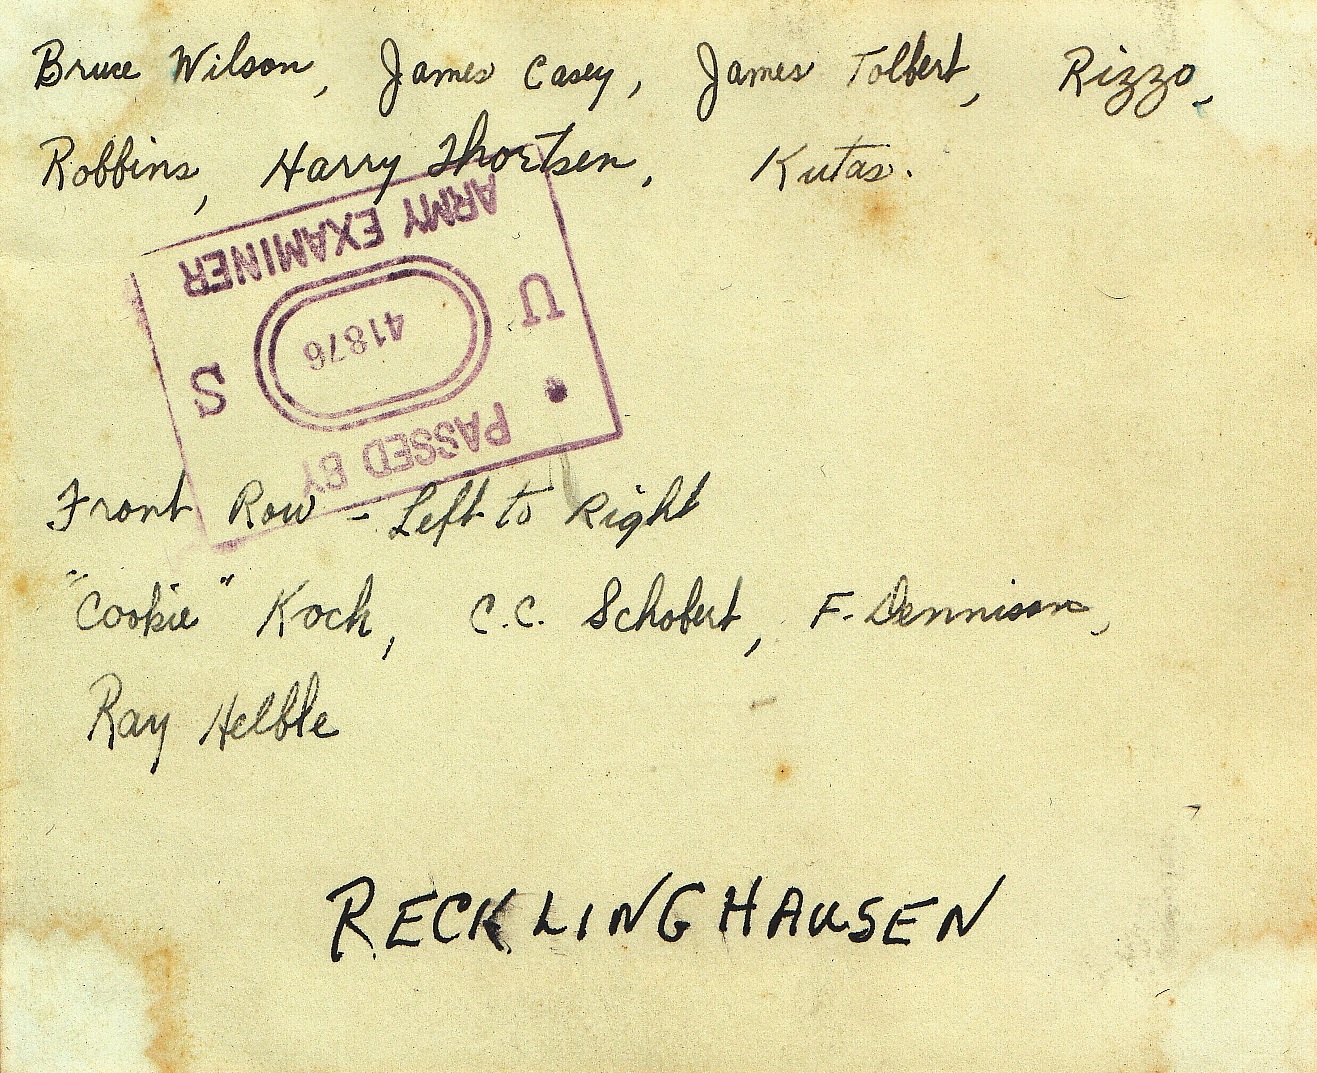 Bruce Wilson, James Casey, James Tolbert, Rizzo,
Robbins, Harry Thortsen, Kutas.
PASSED BY
U . S
41876
ARMY EXAMINER
Front Row - Left to Right
"Cookie" Koch, C.C. Schobert, F. Dennison,
Ray Helble
RECKLINGHAUSEN